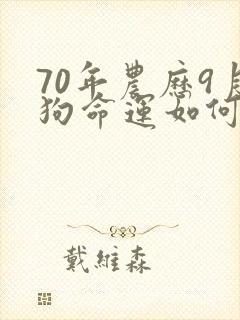 70年農歷9月
狗命運如何
戴維森